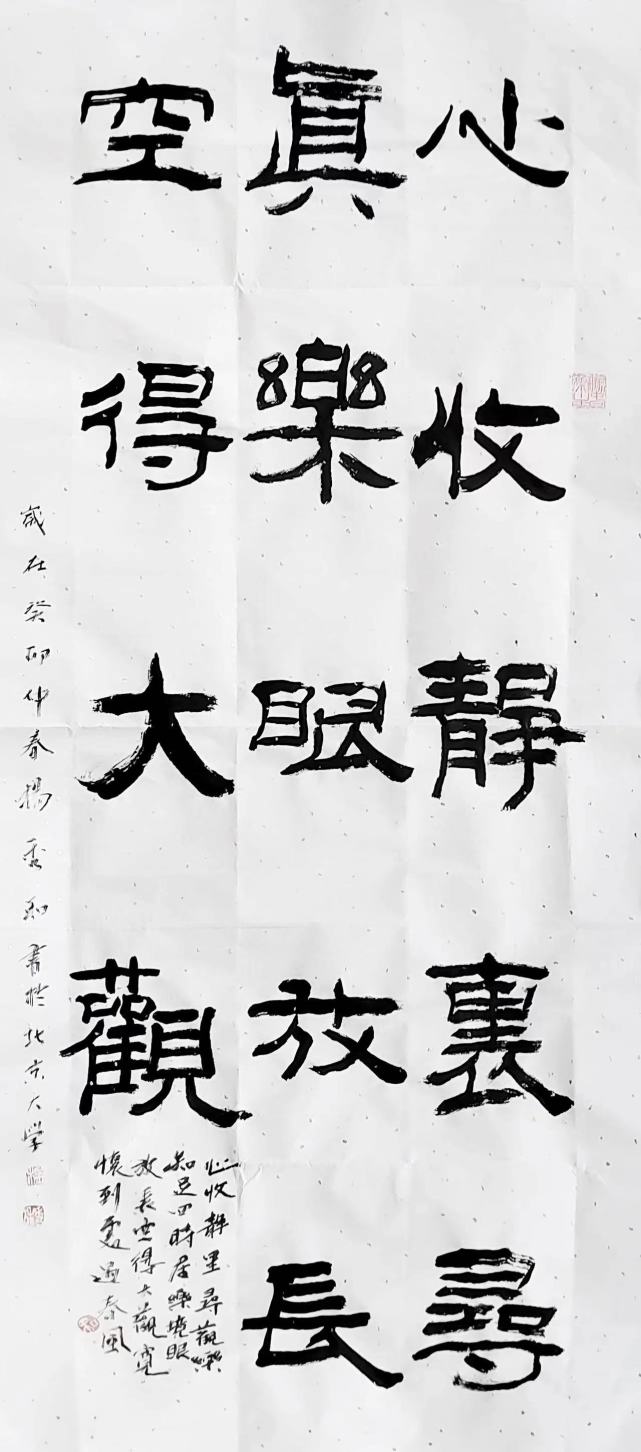 心收靜裏尋
真樂眼放長
空得大觀
心收靜里尋觀樂
知足四時居樂境眼
放長空得大觀寬
懷到處逢春風
歲在癸卯仲春楊秀和書於北京大学